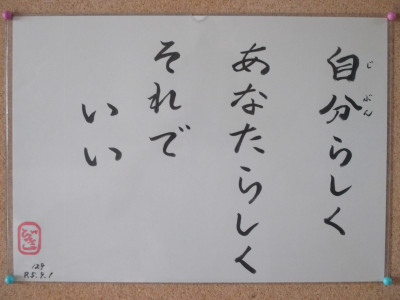 自分らしく
じぶん
あなたらしく
それで
いい
129
R5.9.1